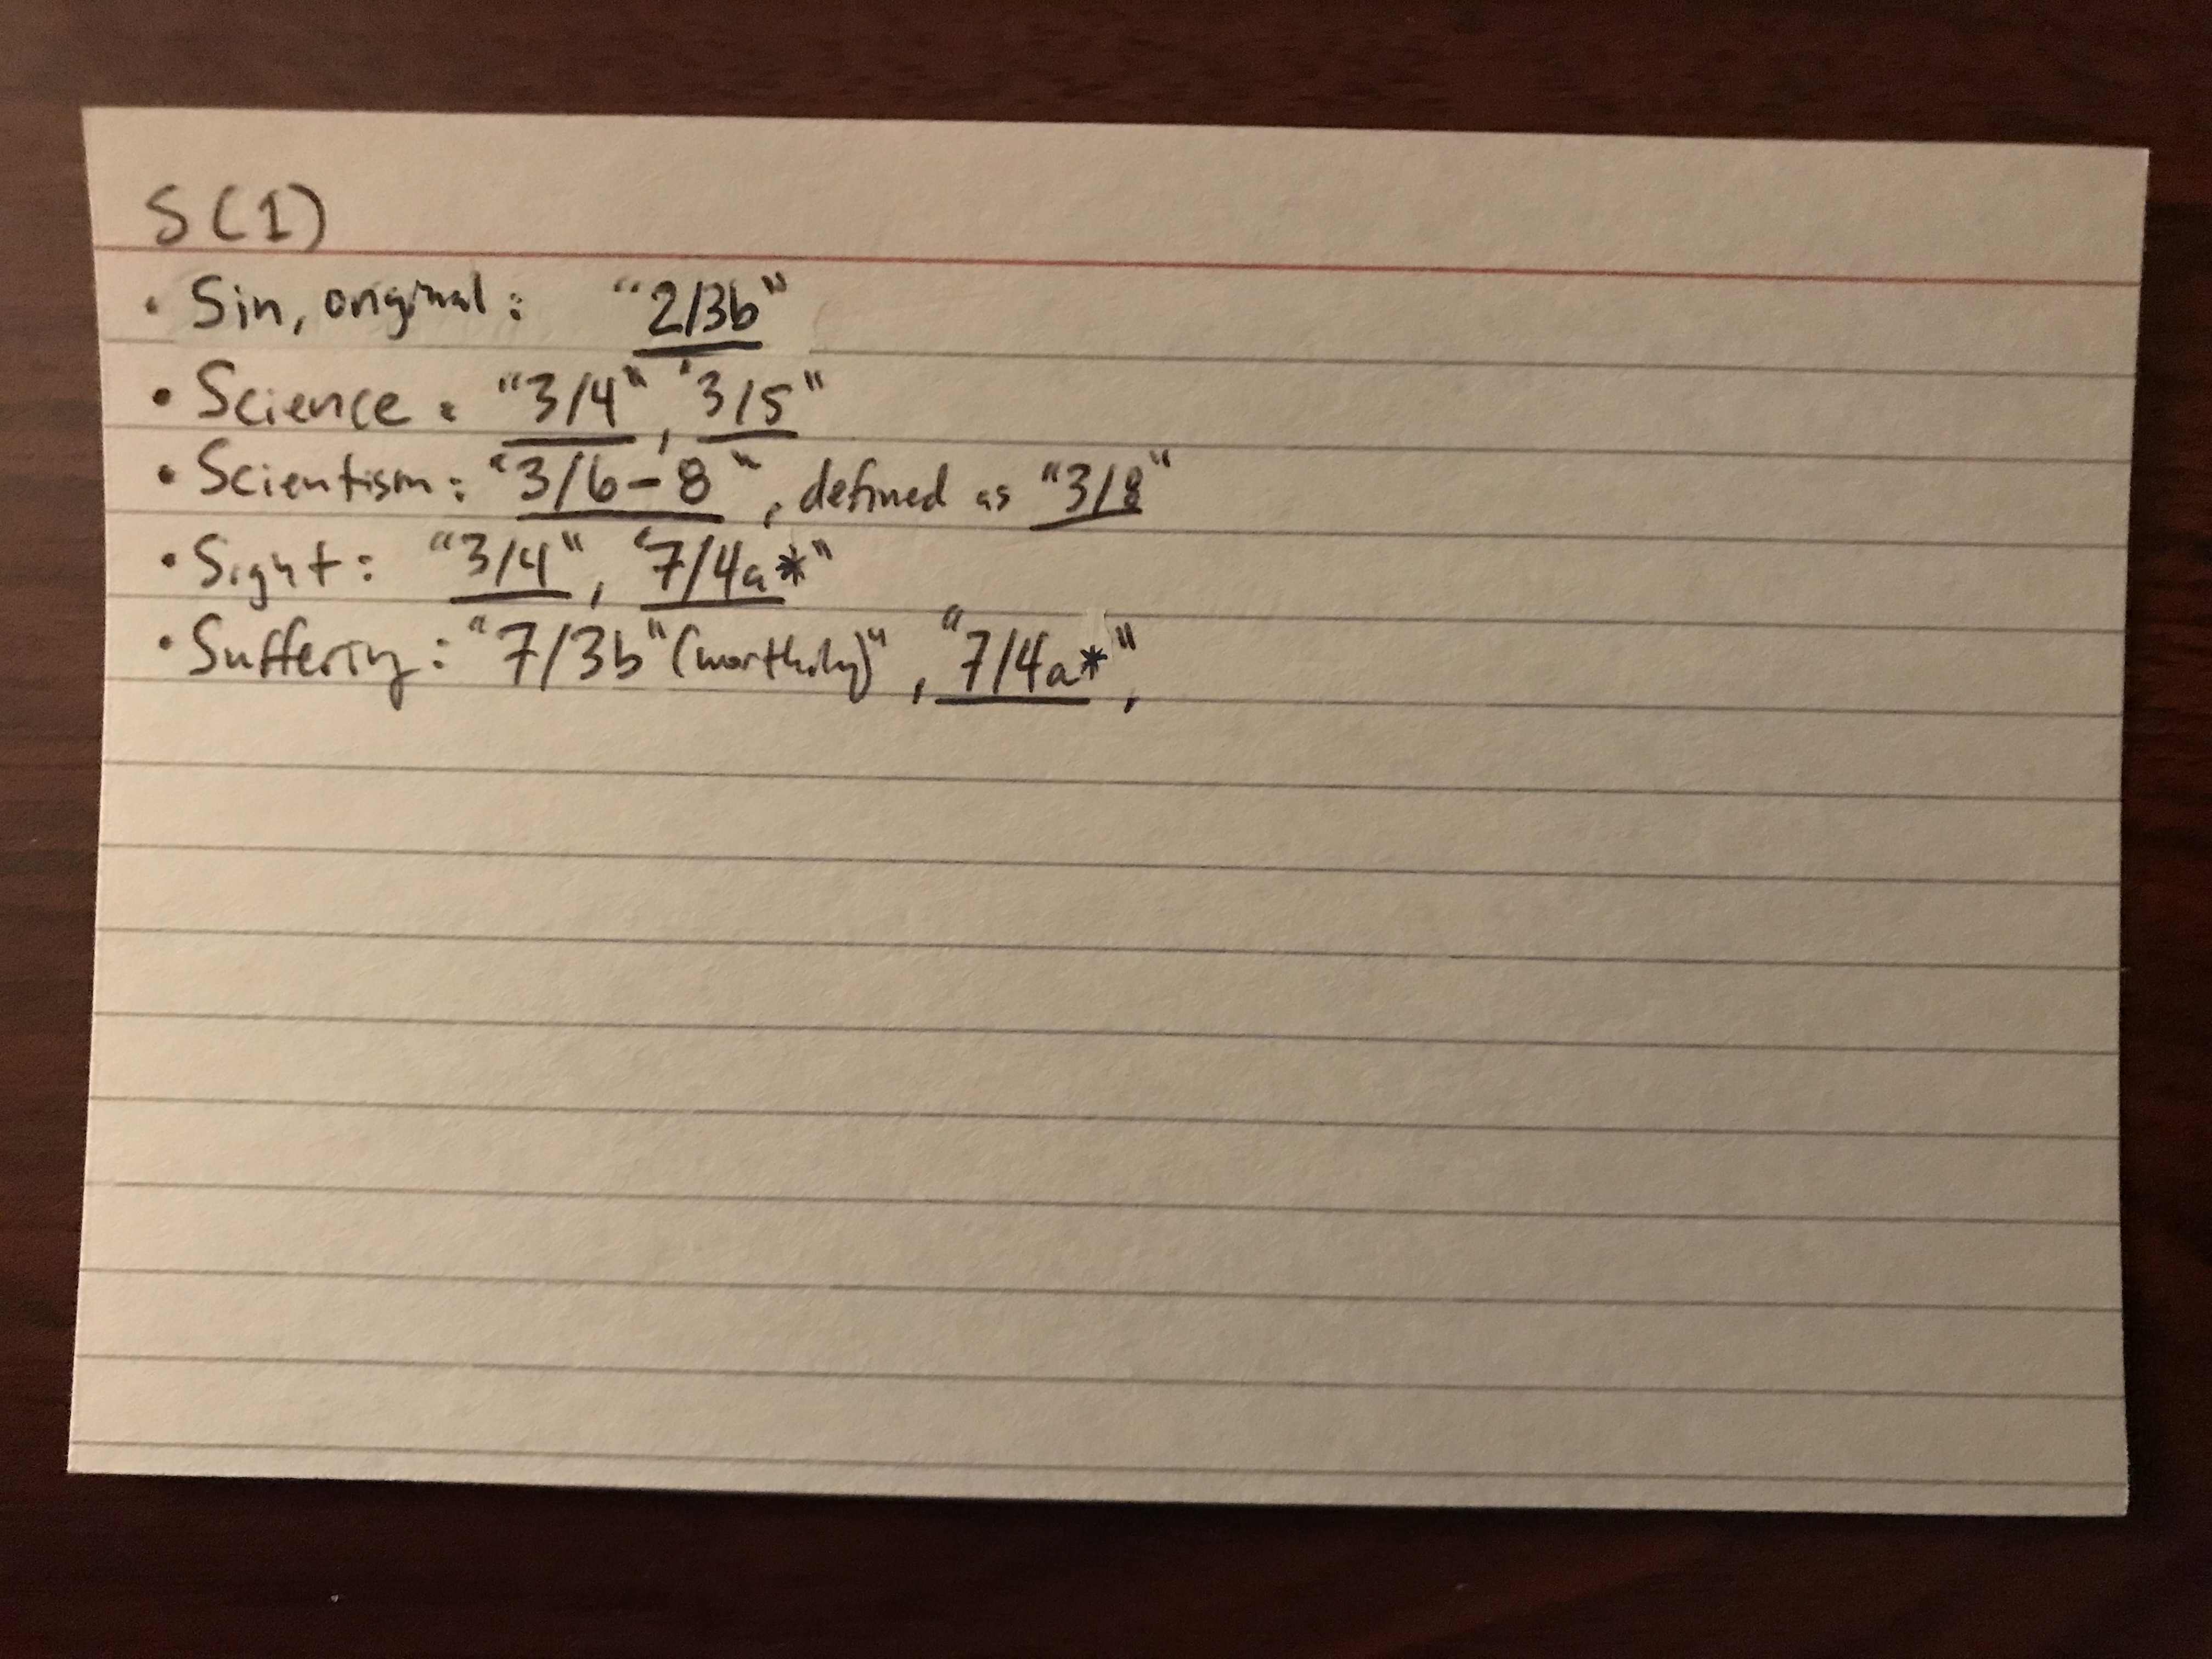 S(1)
• Sin, original: "2/3b"
• Science: "3/4", "3/5"
• Scientism: "3/6-8", defined as "3/8"
• Sight: "3/4", "7/4a*"
• Suffering: "7/3b" (worthily)", "7/4a*",